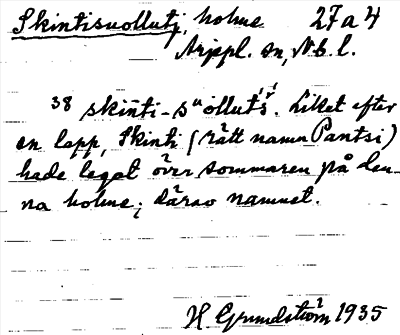 Skintisuollutj, holme 27a4
Arjppl. sn, Nb. l.
38 skinti-suolluts. Liket efter
en lapp, Skinti (rätt namn Pantsi)
hade legat över sommaren på den-
na holme; därav namnet.
H Grundström 1935